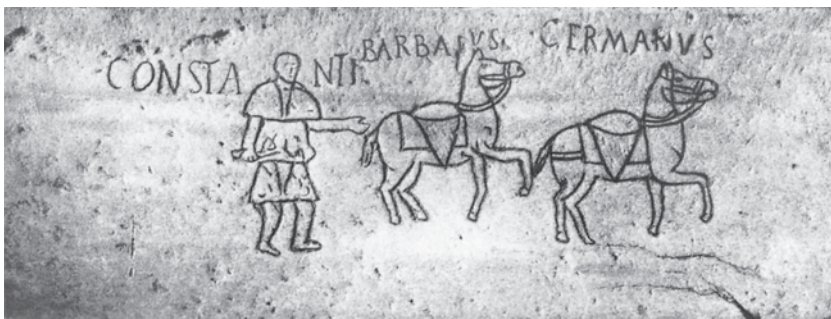 CONSTA NTI BARBARVS GERMANVS